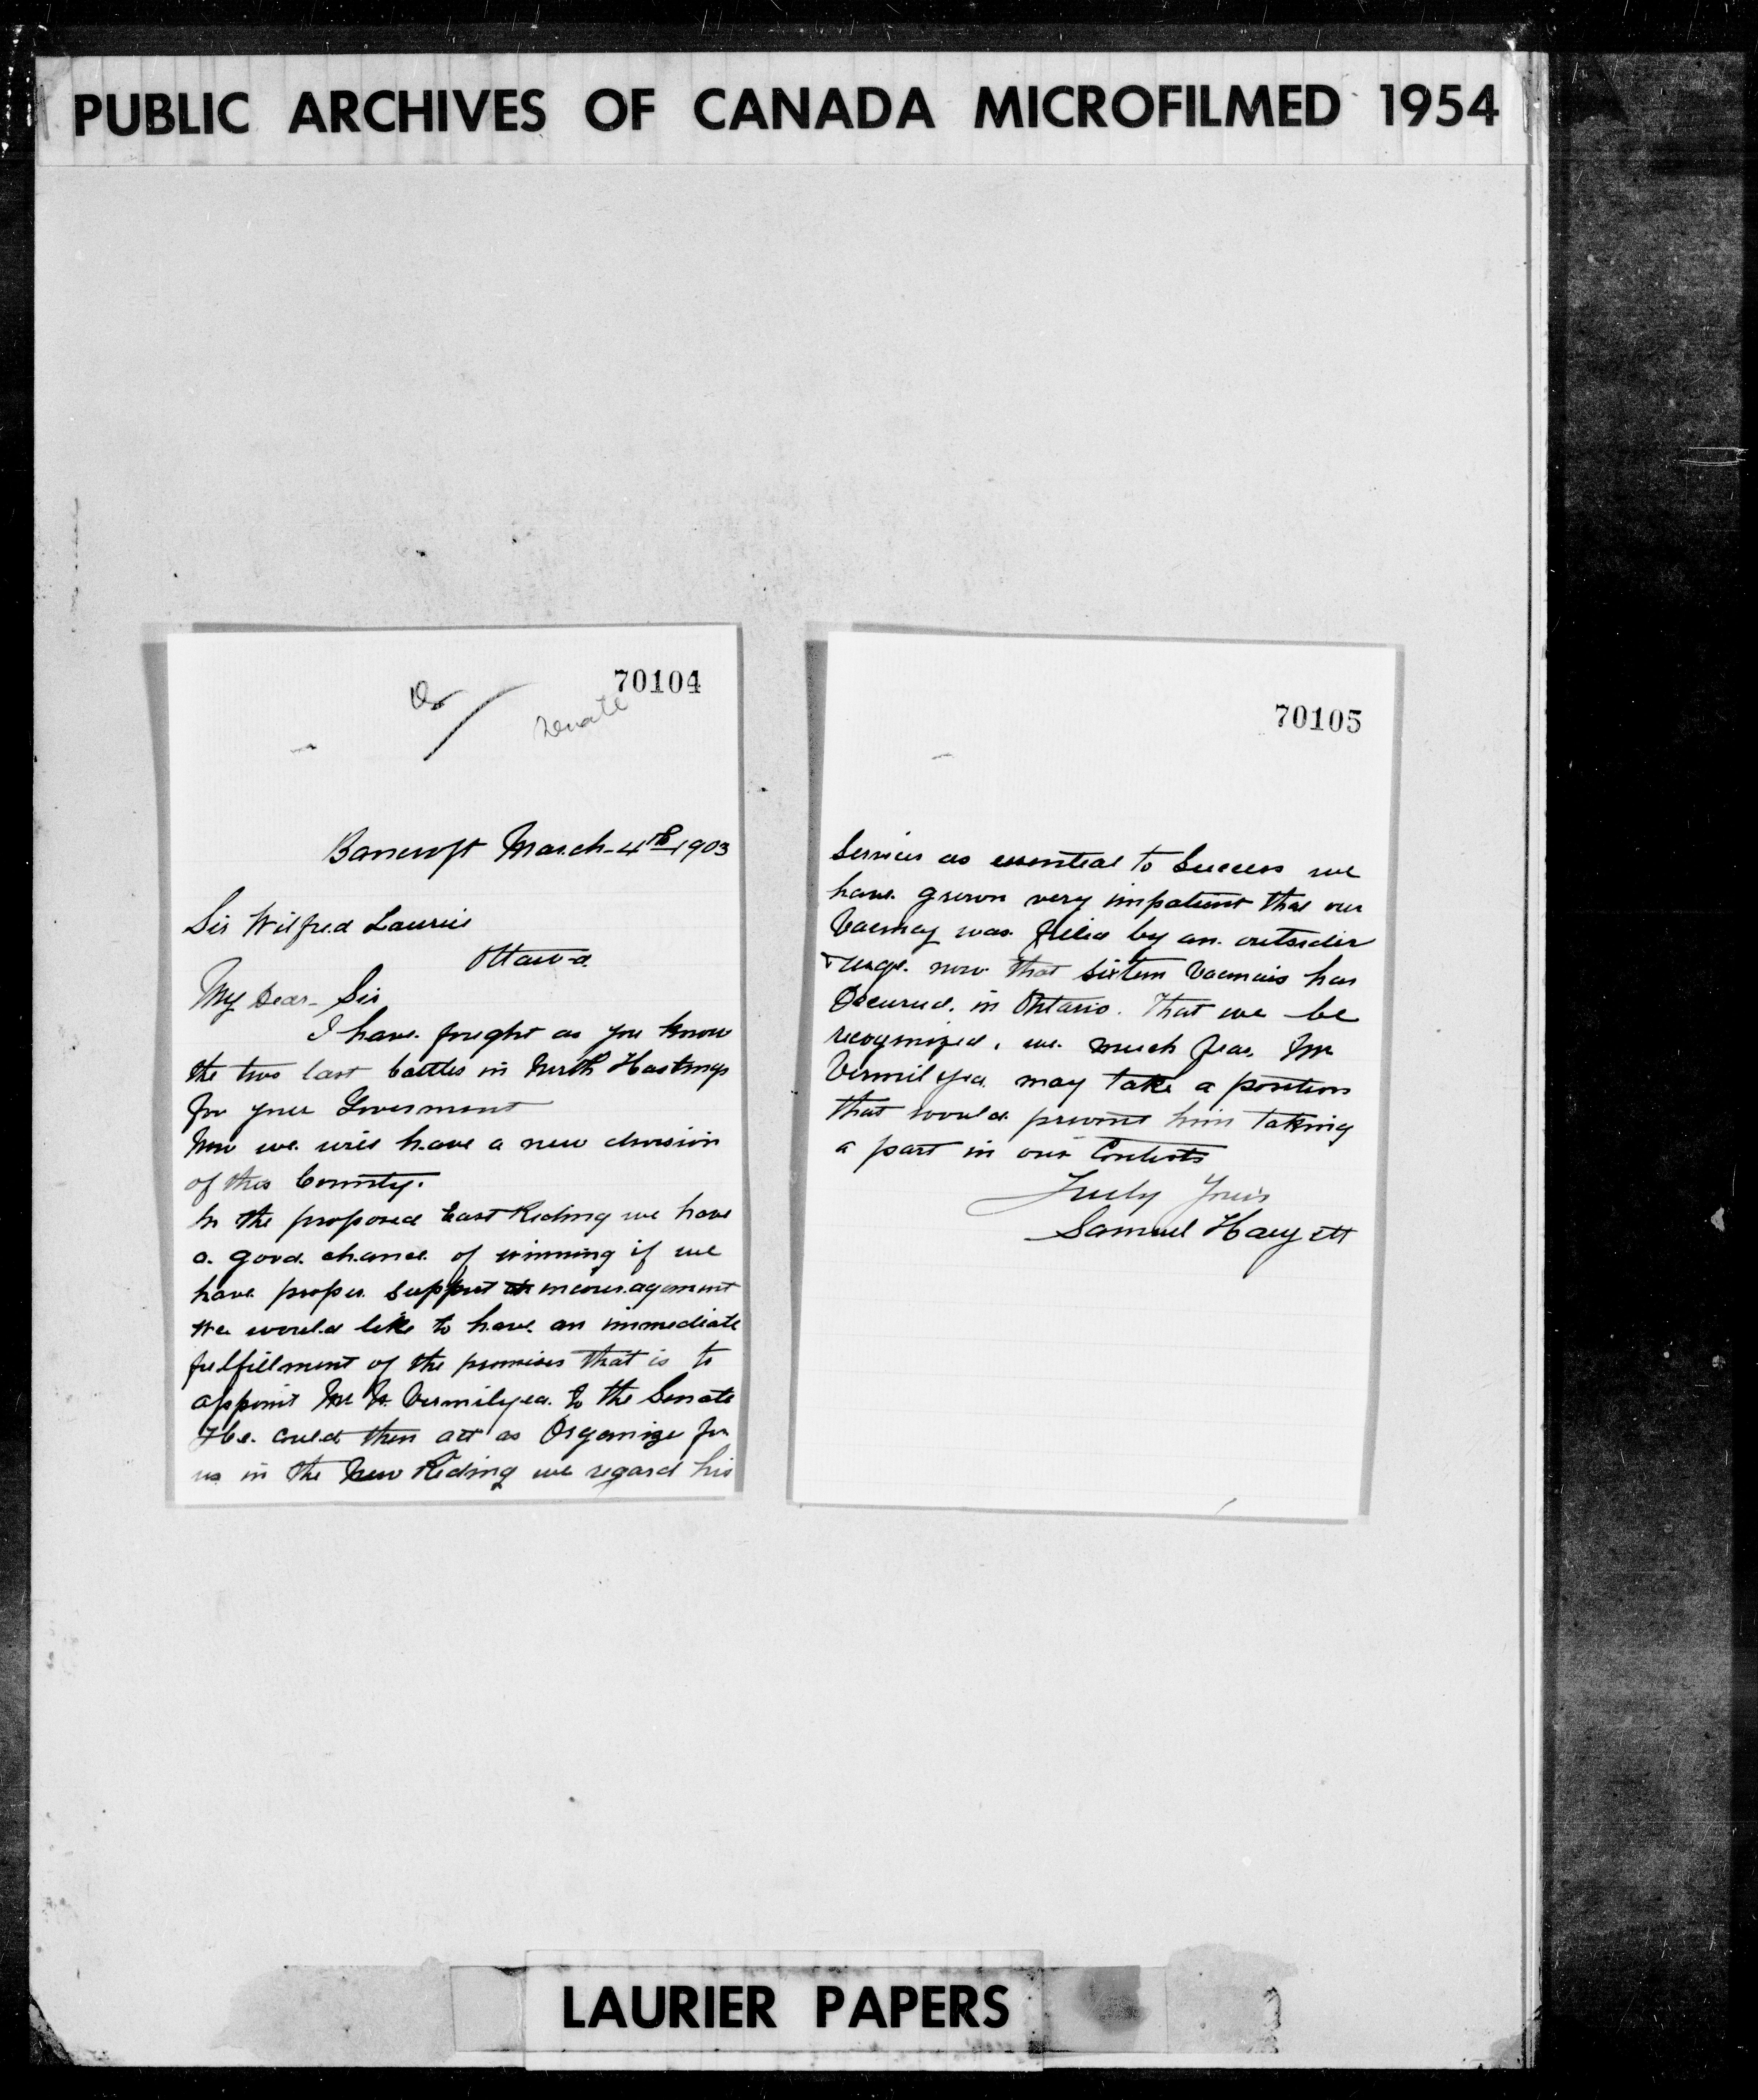 PUBLIC ARCHIVES OF CANADA MICROFILMED 1954
70104
Senate
Bancroft March-4th 1903
Sir Wilfred Laurier
Ottawa
My Dear-Sir
I have fought as you know
the two last battles in North Hastings
for your Goverment
Now we will have a new division
of this County.
In the proposed East Riding we have
a good chance of winning if we
have proper support encouragement
We would like to have an immediate
fulfillment of the promises that is to
appoint Mr N. Vermilyea to the Senate
He could then act as Organize for
us in the New Riding we regard his
70105
Services as essential to Success we
have grown very impatient that our
Vacncy was filled by an outsider
& urge now that sixteen Vacncies has
Occurred in Ontario. That we be
recognized, we much fear Mr
Vermilyea may take a position
that would prevent him taking
a part in our Contests
Truly Yours
Samuel Haryett
LAURIER PAPERS